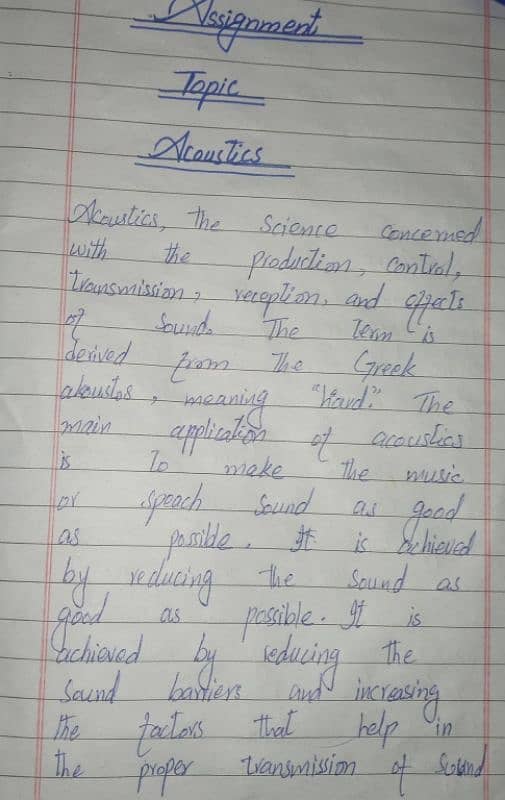 Assignment
Topic
Acoustics
Acoustics, the Science concerned
with the production, control,
transmission, reception, and effects
of Sound. The term is
derived from the Greek
akoustos, meaning "hard". The
main application of acoustics
is To make the music
or speach Sound as good
as possible. It is achieved
by reducing the Sound as
good as possible. It is
achieved by reducing the
Sound barriers and increasing
the factors that help in
the proper transmission of Sound